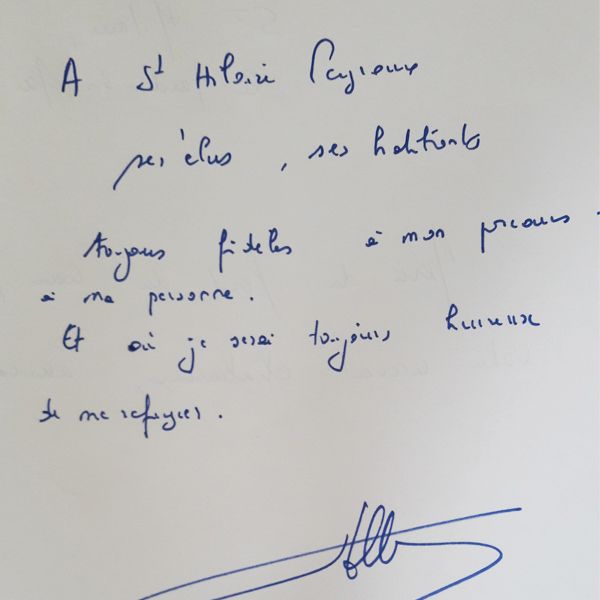 A St Hilaire Peyroux
ses élus, ses habitants
toujours fidèles à mon parcours
à ma personne.
Et où je serai toujours heureuse
de me réfugier.